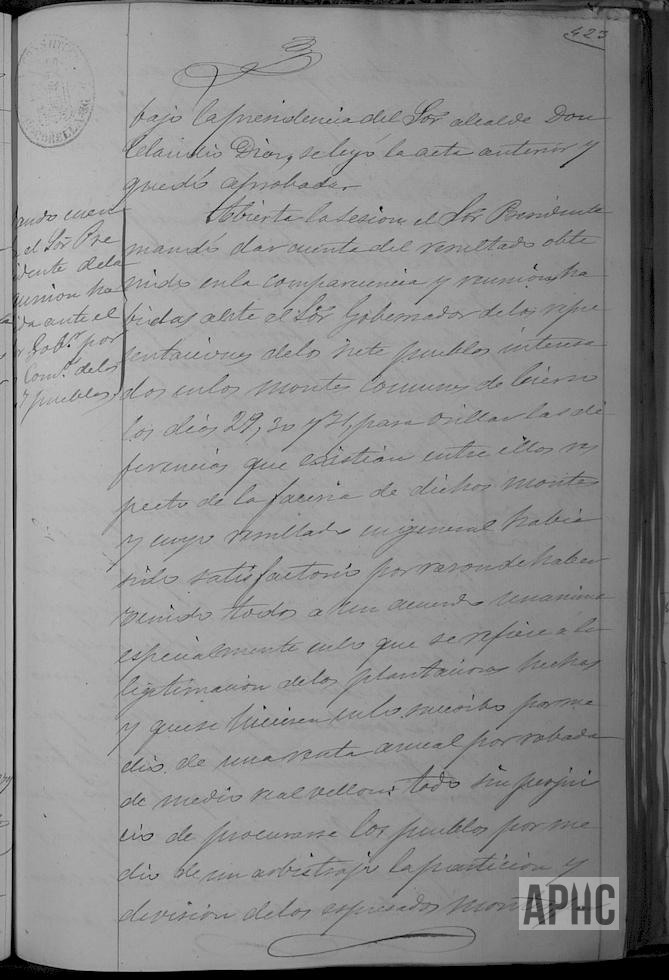 423
bajo la presidencia del Sor alcalde Don
Claudio Dior, se leyó la acta anterior y
quedó aprobada.
Abierta la sesion el Sor Presidente
mandó dar cuenta del resultado obte
nido en la comparecencia y reunion ha
bidas ante el Sor Gobernador de los repre
sentaciones de los siete pueblos interesa
dos en los montes comunes de Cierro
los dias 29, 30 y 31 para orillar las di
ferencias que existian entre ellos res
pecto de la faceria de dichos montes
y cuyo resultado en general habia
sido satisfactorio por razon de haber
venido todos a un acuerdo unanime
especialmente en lo que se refiere a la
ligitimacion de las plantaciones hechas
y que se hiciesen en lo sucesibo por me
dio de una renta anual por robada
de medio real vellon: todo sin perjui
cio de procurarse los pueblos por me
dio de un arbitraje la particion y
division de los espresados montes
ando cuen
el Sor Pre
idente de la
union ha
ida ante el
Gobr por
Comn de los
7 pueblos
APHC